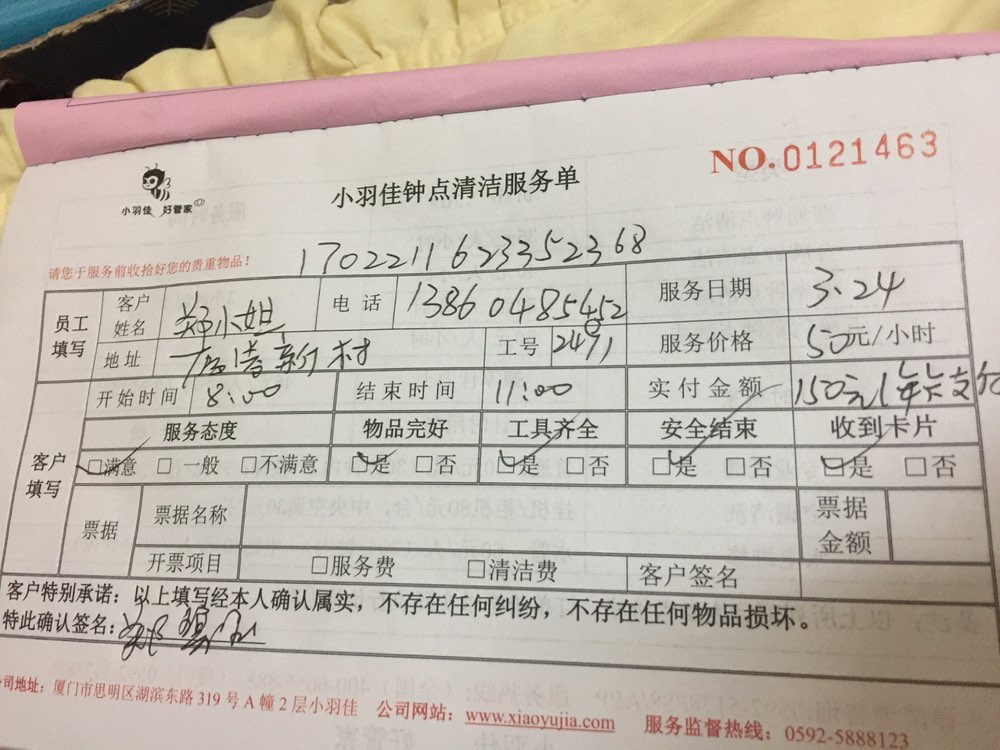 NO.0121463
小羽佳 好管家
小羽佳钟点清洁服务单
请您于服务前收拾好您的贵重物品！
17022116233352368
员工填写 客户姓名 郑小姐 电话 13860485452 服务日期 3.24
地址 新村 工号 2491 服务价格 50元/小时
客户填写 开始时间 8:00 结束时间 11:00 实付金额 150元
服务态度 物品完好 工具齐全 安全结束 收到卡片
☑满意 □一般 □不满意 ☑是 □否 ☑是 □否 ☑是 □否 ☑是 □否
票据 票据名称 票据金额
开票项目 □服务费 □清洁费 客户签名
客户特别承诺：以上填写经本人确认属实，不存在任何纠纷，不存在任何物品损坏。
特此确认签名：
公司地址：厦门市思明区湖滨东路319号A幢2层小羽佳 公司网站：www.xiaoyujia.com 服务监督热线：0592-5888123